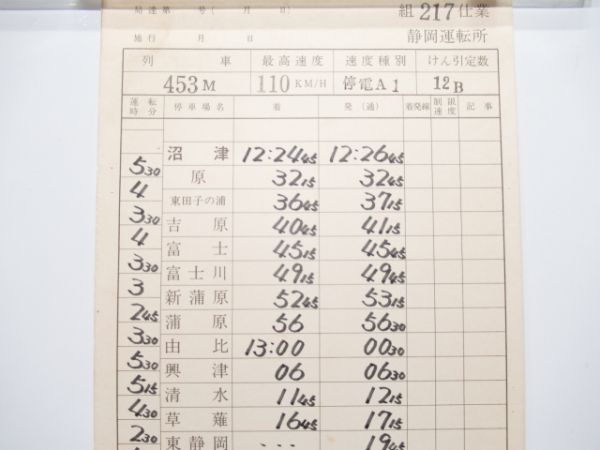 局達第 号( 月 日) 組217仕業
施行 月 日 静岡運転所
列 車 最高速度 速度種別 けん引定数
453M 110KM/H 停電A1 12B
運転時分 停車場名 着 発(通) 着発線 制限速度 記事
沼津 12:24 45 12:26 45
5 30
原 32 15 32 45
4
東田子の浦 36 45 37 15
3 30
吉原 40 45 41 15
4
富士 45 15 45 45
3 30
富士川 49 15 49 45
3
新蒲原 52 45 53 15
2 45
蒲原 56 56 30
3 30
由比 13:00 00 30
5 30
興津 06 06 30
5 15
清水 11 45 12 15
4 30
草薙 16 45 17 15
2 30
東静岡 ... 19 45